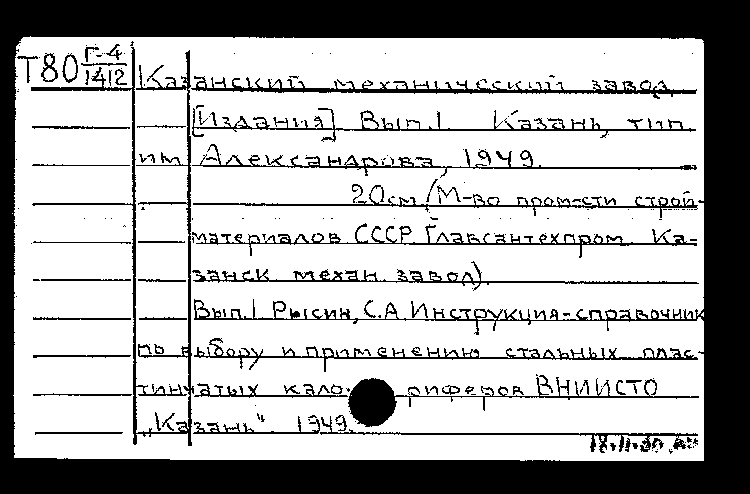 Т80 Г-4
1412
Казанский механический завод
[Издания] Вып.1. Казань, тип.
им Александрова, 1949.
20см. (М-во пром-сти строй-
материалов СССР Главсантехпром. Ка-
занск механ. завод).
Вып.1 Рысин, С.А. Инструкция-справочник
по выбору и применению стальных плас-
тинчатых кало- риферов ВНИИСТО
„Казань“. 1949.